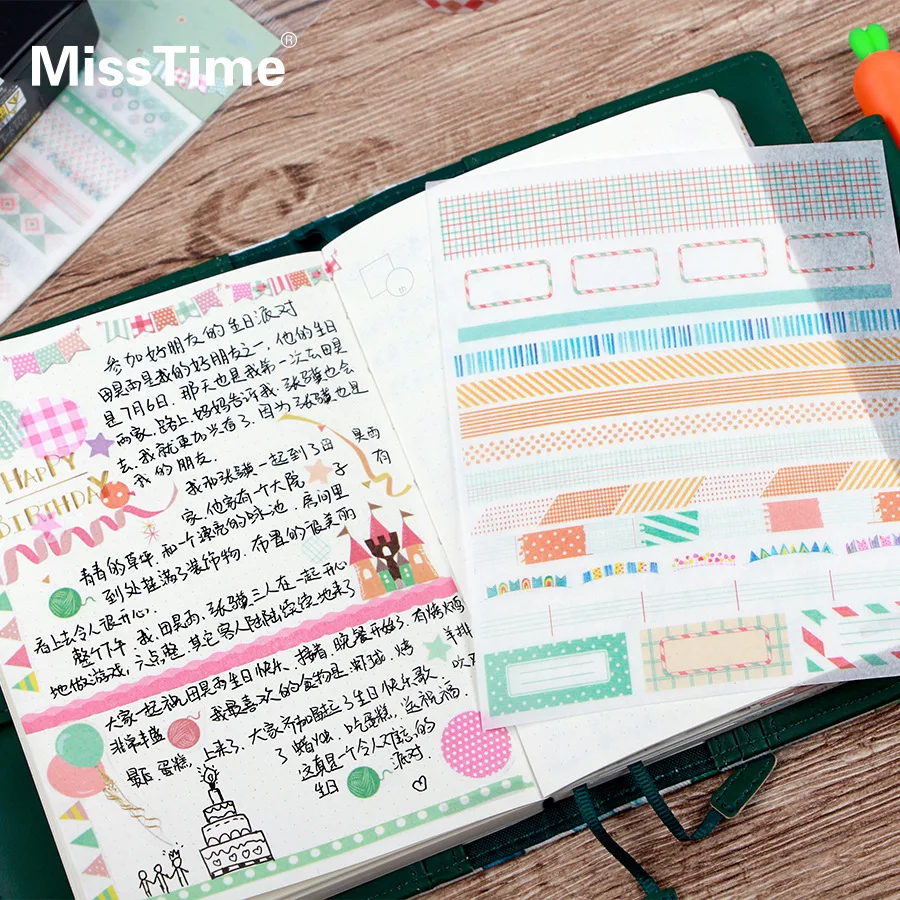 MissTime®
参加好朋友的生日派对
田昊雨是我的好朋友之一，他的生日
是7月6日，那天也是我第一次去田昊
雨家，路上，妈妈告诉我，张骥也会
去，我就更加兴奋了，因为张骥也是
我的朋友。
我和张骥一起到了田昊雨
家，他家有一个大院子，有
青青的草坪，和一个漂亮的泳池，房间里
到处挂满了装饰物，布置的很美丽
看上去令人很开心。
整个下午，我，田昊雨，张骥三人在一起开心
地做游戏，六点整，其它客人陆陆续续地来了
大家一起祝田昊雨生日快乐、接着，晚餐开始了，有烤鸡
非常丰盛 我最喜欢的食物是 烤
最后 蛋糕，上来了，大家齐 了生日快乐歌，吹
了蜡烛，吃蛋糕，送祝福，
这真是一个令人难忘的
生日 派对
HAPPY
BIRTHDAY
th